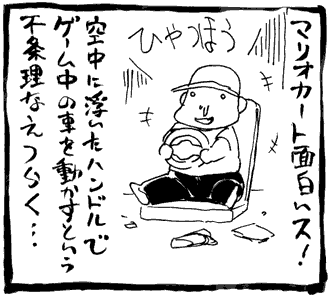 マリオカート面白いス!
ひやつほう
空中に浮いたハンドルで
ゲーム中の車を動かすという
不条理なえつらく…